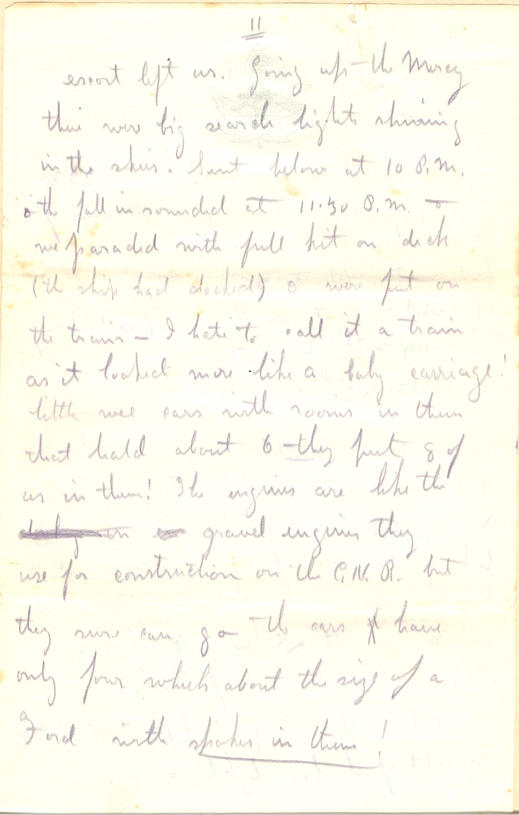 11
escort left us. Going up the Mersey
there were big search lights shining
in the skies. Went below at 10 P.M.
& the fall in sounded at 11.30 P.M. &
we paraded with full kit on deck
(the ship had docked) & were put on
the train – I hate to call it a train
as it looked more like a baby carriage!
little wee cars with rooms in them
that hold about 6 – they put 8 of
us in them! The engines are like the
gravel engines they
use for construction on the C.N.R. but
they sure can go – The cars have
only four which about the size of a
Ford with spokes in them!